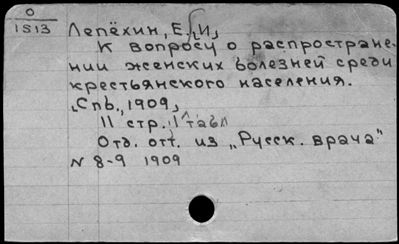 О
1513 Лепёхин, Е. И,
К вопросу о распростране-
нии женских болезней среди
крестьянского населения.
Спб., 1909,
11 стр. 1 табл
Отд. отт. из „Русск. врача"
N 8-9 1909